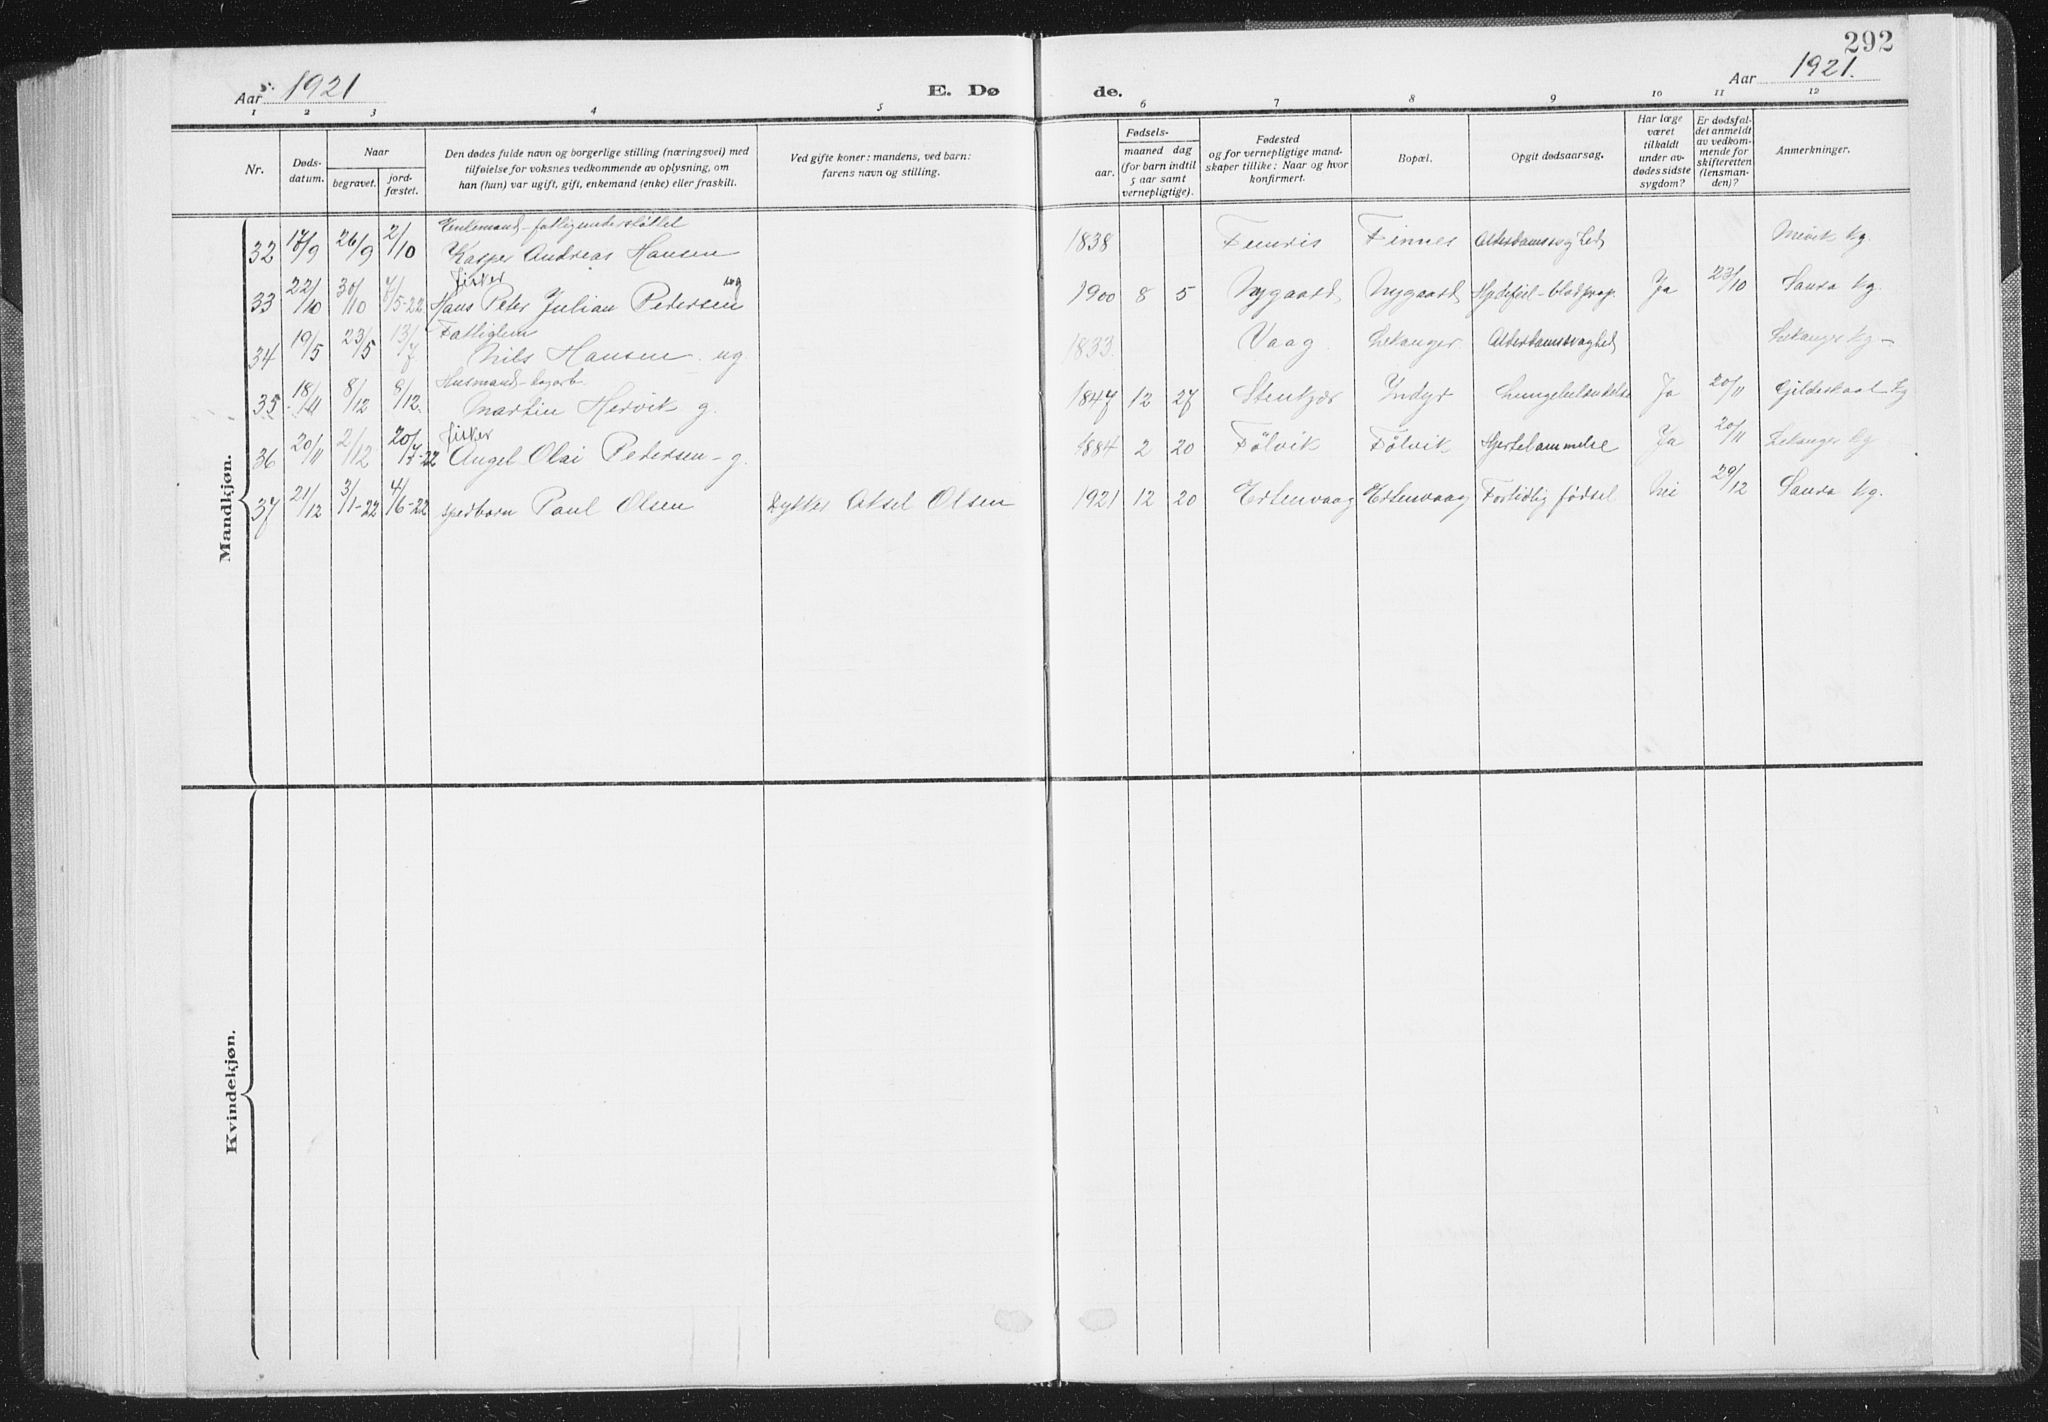 292
Aar 1921
E. Dø
de.
Aar 1921.
1 2 3 4 5 6 7 8 9 10 11 12
Nr.
Døds-
datum.
Naar
begravet.
jord-
fæstet.
Den dødes fulde navn og borgerlige stilling (næringsvei) med
tilføielse for voksnes vedkommende av oplysning, om
han (hun) var ugift, gift, enkemand (enke) eller fraskilt.
Ved gifte koner: mandens, ved barn:
farens navn og stilling.
Fødsels-
aar.
maaned dag
(for barn indtil
5 aar samt
vernepligtige).
Fødested
og for vernepligtige mand-
skaper tillike: Naar og hvor
konfirmert.
Bopæl.
Opgit dødsaarsag.
Har læge
været
tilkaldt
under av-
dødes sidste
sygdom?
Er dødsfal-
det anmeldt
av vedkom-
mende for
skifteretten
(lensman-
den)?
Anmerkninger.
Mandkjøn.
Enkemand - fattigunderstøttet
32 17/9 26/9 2/10 Kasper Andreas Hansen 1838 Finnes Alderdomssvaghed Mevik kg.
fisker ug
33 22/10 30/10 7/5-22 Hans Peter Julian Petersen 1900 8 5 Nygaard Nygaard Hjdefeil - blodprop. Ja 23/10 Saura kg.
Fattiglem
34 19/5 23/5 13/7 Nils Hansen ug 1833 Vaag Lekanger Alderdomssvaghed Lekanger kg -
Husmand -
35 18/11 8/12 8/12. Martin Hervik g. 1847 12 27 Indyr Lungebetændelse Ja 20/11 Gjildeskaal kg
fisker
36 20/11 2/12 20/7-22 Angel Olai Petersen - g. 1884 2 20 Følvik Følvik Hjertelammelse Ja 20/11 Lekanger kg
37 21/12 3/1-22 4/6-22 spedbarn Paul Olsen Dykker Aksel Olsen 1921 12 20 Ertenvaag Ertenvaag Fortidlig fødsel Nei 29/12 Saura kg.
Kvindekjøn.